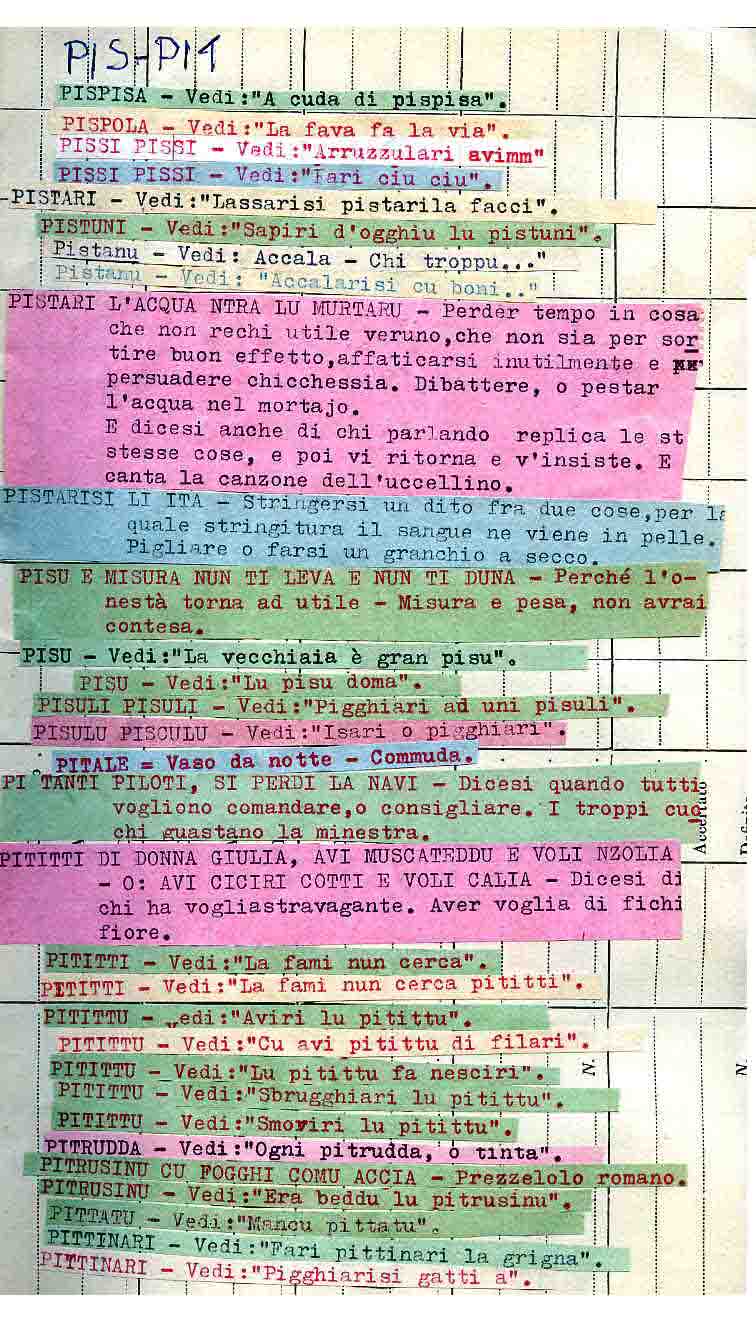 PIS-PIT
PISPISA - Vedi:"A cuda di pispisa".
PISPOLA - Vedi:"La fava fa la via".
PISSI PISSI - Vedi:"Arruzzulari avimm"
PISSI PISSI - Vedi:"Fari ciu ciu".
-PISTARI - Vedi:"Lassarisi pistarila facci".
PISTUNI - Vedi:"Sapiri d'ogghiu lu pistuni".
Pistanu - Vedi: Accala - Chi troppu..."
Pistanu - Vedi: "Accalarisi cu boni.."
PISTARI L'ACQUA NTRA LU MURTARU - Perder tempo in cosa
che non rechi utile veruno,che non sia per sor
tire buon effetto,affaticarsi inutilmente e
persuadere chicchessia. Dibattere, o pestar
l'acqua nel mortajo.
E dicesi anche di chi parlando replica le st
stesse cose, e poi vi ritorna e v'insiste. E
canta la canzone dell'uccellino.
PISTARISI LI ITA - Stringersi un dito fra due cose,per la
quale stringitura il sangue ne viene in pelle.
Pigliare o farsi un granchio a secco.
PISU E MISURA NUN TI LEVA E NUN TI DUNA - Perché l'o-
nestà torna ad utile - Misura e pesa, non avrai
contesa.
PISU - Vedi:"La vecchiaia è gran pisu".
PISU - Vedi:"Lu pisu doma".
PISULI PISULI - Vedi:"Pigghiari ad uni pisuli".
PISULU PISCULU - Vedi:"Isari o pigghiari".
PITALE = Vaso da notte - Commuda.
PI TANTI PILOTI, SI PERDI LA NAVI - Dicesi quando tutti
vogliono comandare,o consigliare. I troppi cuo
chi guastano la minestra.
Accertato
PITITTI DI DONNA GIULIA, AVI MUSCATEDDU E VOLI NZOLIA
- O: AVI CICIRI COTTI E VOLI CALIA - Dicesi di
chi ha vogliastravagante. Aver voglia di fichi
fiore.
PITITTI - Vedi:"La fami nun cerca".
PETITTI - Vedi:"La fami nun cerca pititti".
PITITTU - „edi:"Aviri lu pitittu".
PITITTU - Vedi:"Cu avi pitittu di filari".
PITITTU - Vedi:"Lu pitittu fa nesciri".
N.
N.
PITITTU - Vedi:"Sbrugghiari lu pitittu".
PITITTU - Vedi:"Smoviri lu pitittu".
PITRUDDA - Vedi:"Ogni pitrudda, o tinta".
PITRUSINU CU FOGGHI COMU ACCIA - Prezzelolo romano.
PITRUSINU - Vedi:"Era beddu lu pitrusinu".
PITTATU - Vedi:"Mancu pittatu".
PITTINARI - Vedi:"Fari pittinari la grigna".
PITTINARI - Vedi:"Pigghiarisi gatti a".